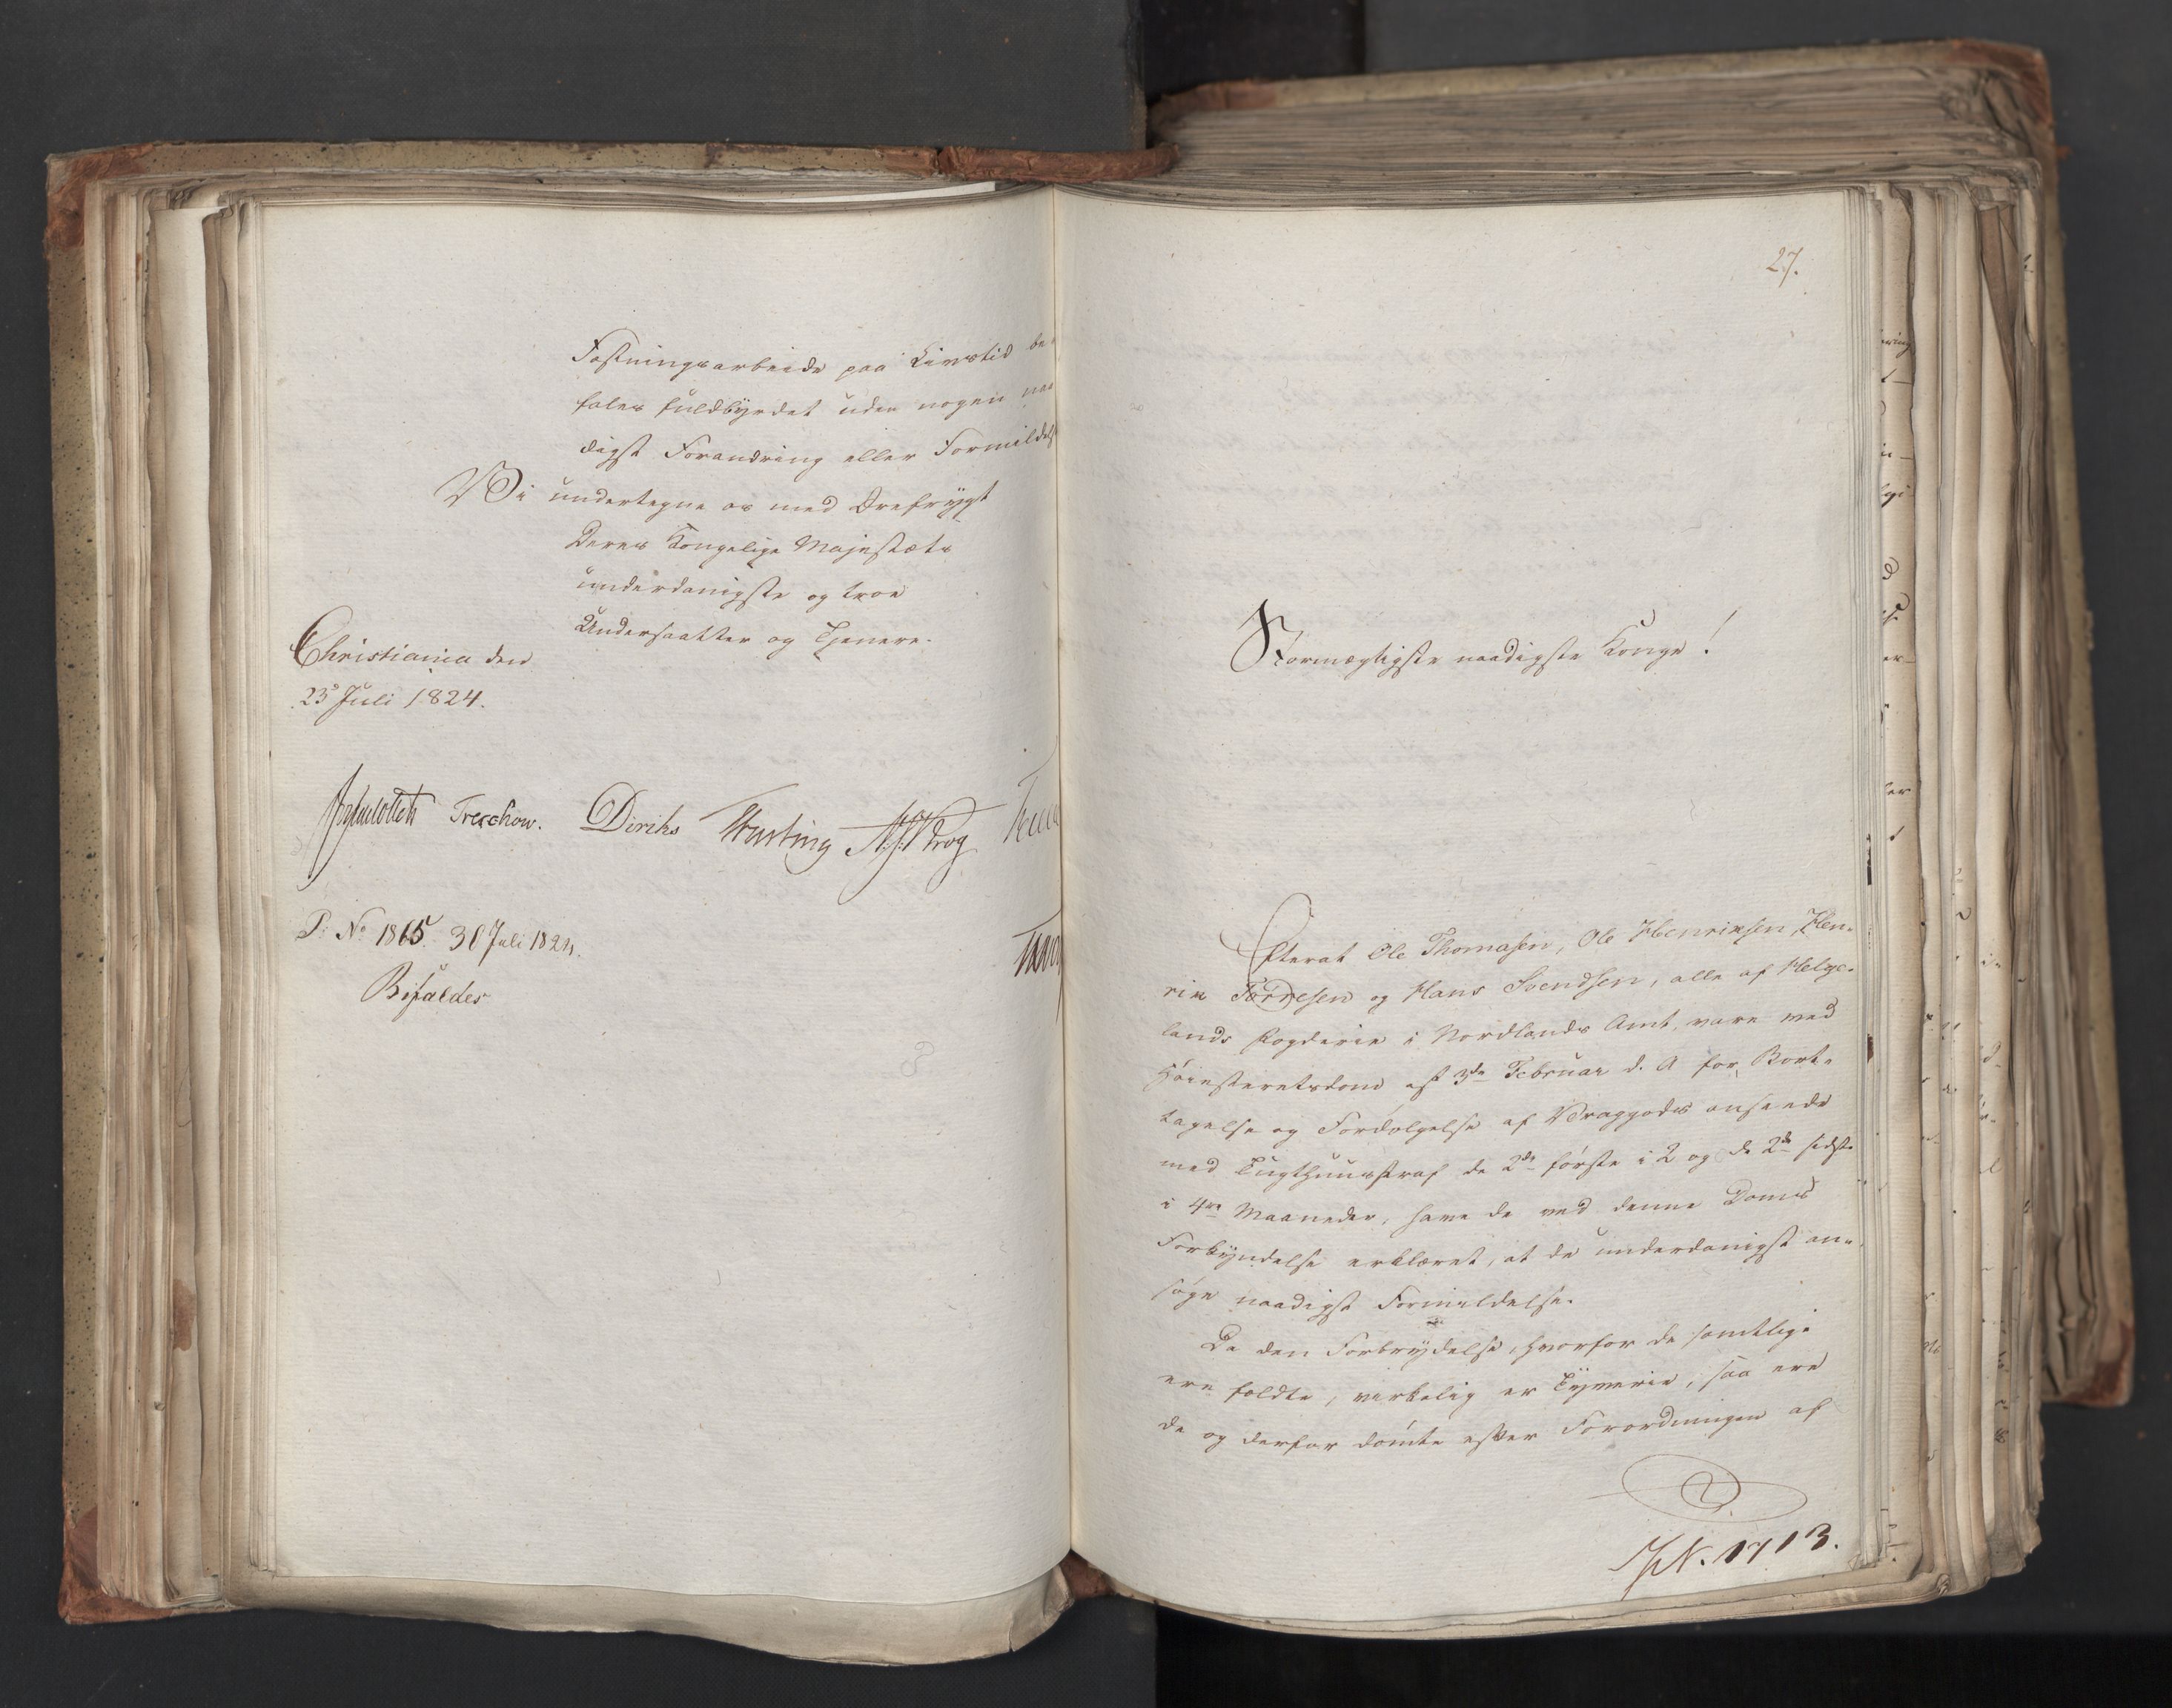 Fæstningsarbeide paa Livstid be-
fales fuldbyrdet uden nogen naa
digst Forandring eller Formildels
Vi undertegne os med Ærefrygt
Deres Kongelige Majestæts
underdanigste og troe
Undersaatter og Tjenere.
Christiania den
23de Juli 1824.
Treschow. Diriks A. J. Krog
P: No 1865. 30 Juli 1824.
Bifaldes
27.
Stormægtigste naadigste Konge!
Efterat Ole Thomasen, Ole Henriksen, Hen-
rik Torresen og Hans Svendsen, alle af Helge-
lands Fogderie i Nordlands Amt, vare ved
Høiesteretsdom af 3de Februar d. A for Bort-
tagelse og Fordølgelse af Vraggods anseede
med Tugthuusstraf de 2de første i 2 og de 2de sidste
i 4re Maaneder, have de ved denne Doms
Forkyndelse erklæret, at de underdanigst an-
søge naadigst Formildelse.
Da den Forbrydelse, hvorfor de samtlige
ere fældte, virkelig er Tyverie, saa ere
de og derfor dømte efter Forordningen af
JN. 1713.